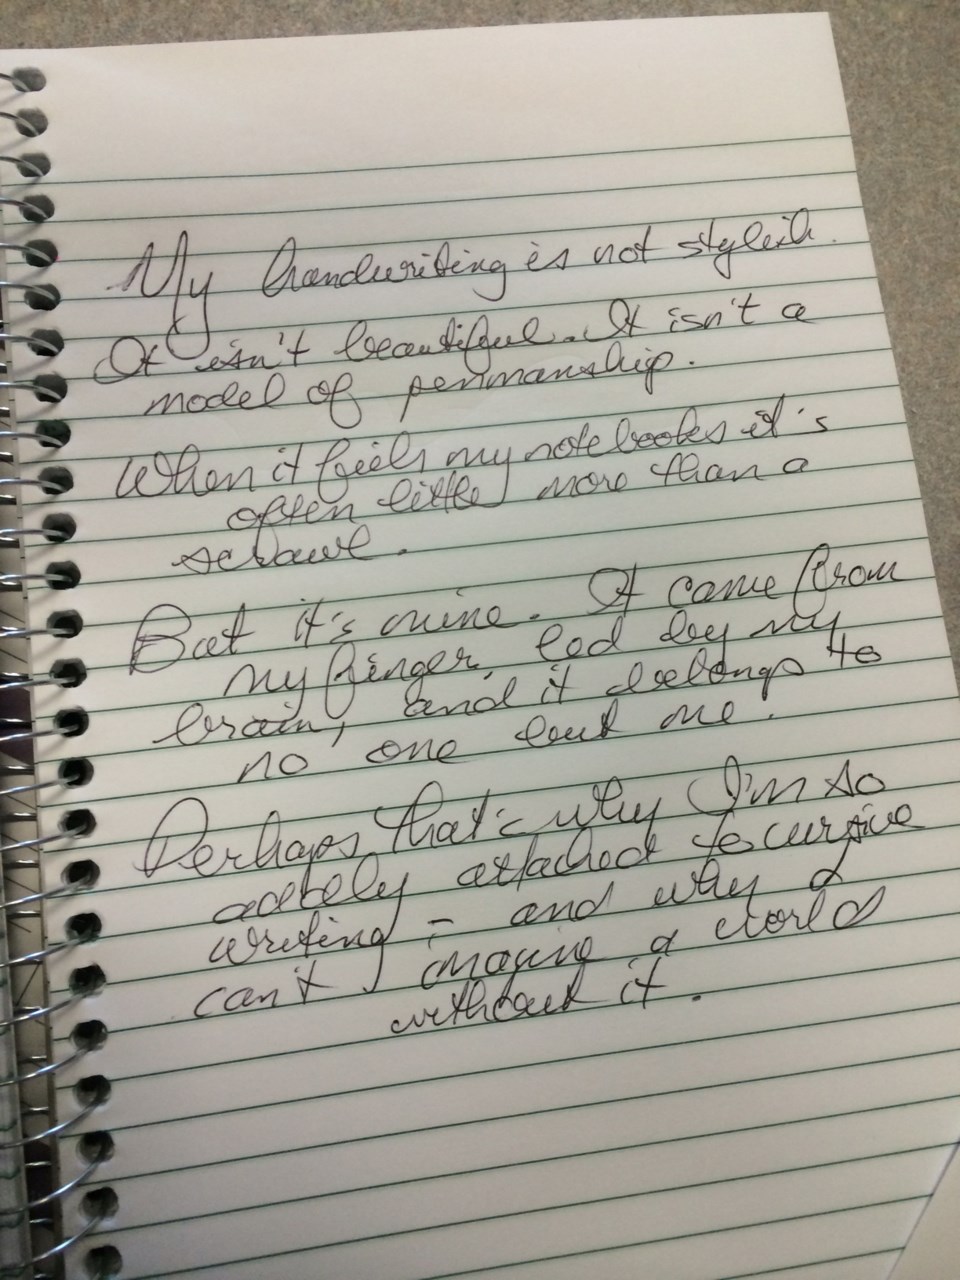 My handwriting is not stylish.
It isn't beautiful. It isn't a
model of penmanship.
When it fills my notebooks it's
often little more than a
scrawl.
But it's mine. It came from
my finger, led by my
brain, and it belongs to
no one but me.
Perhaps that's why I'm so
attached to cursive
writing - and why I
can't imagine a world
without it.